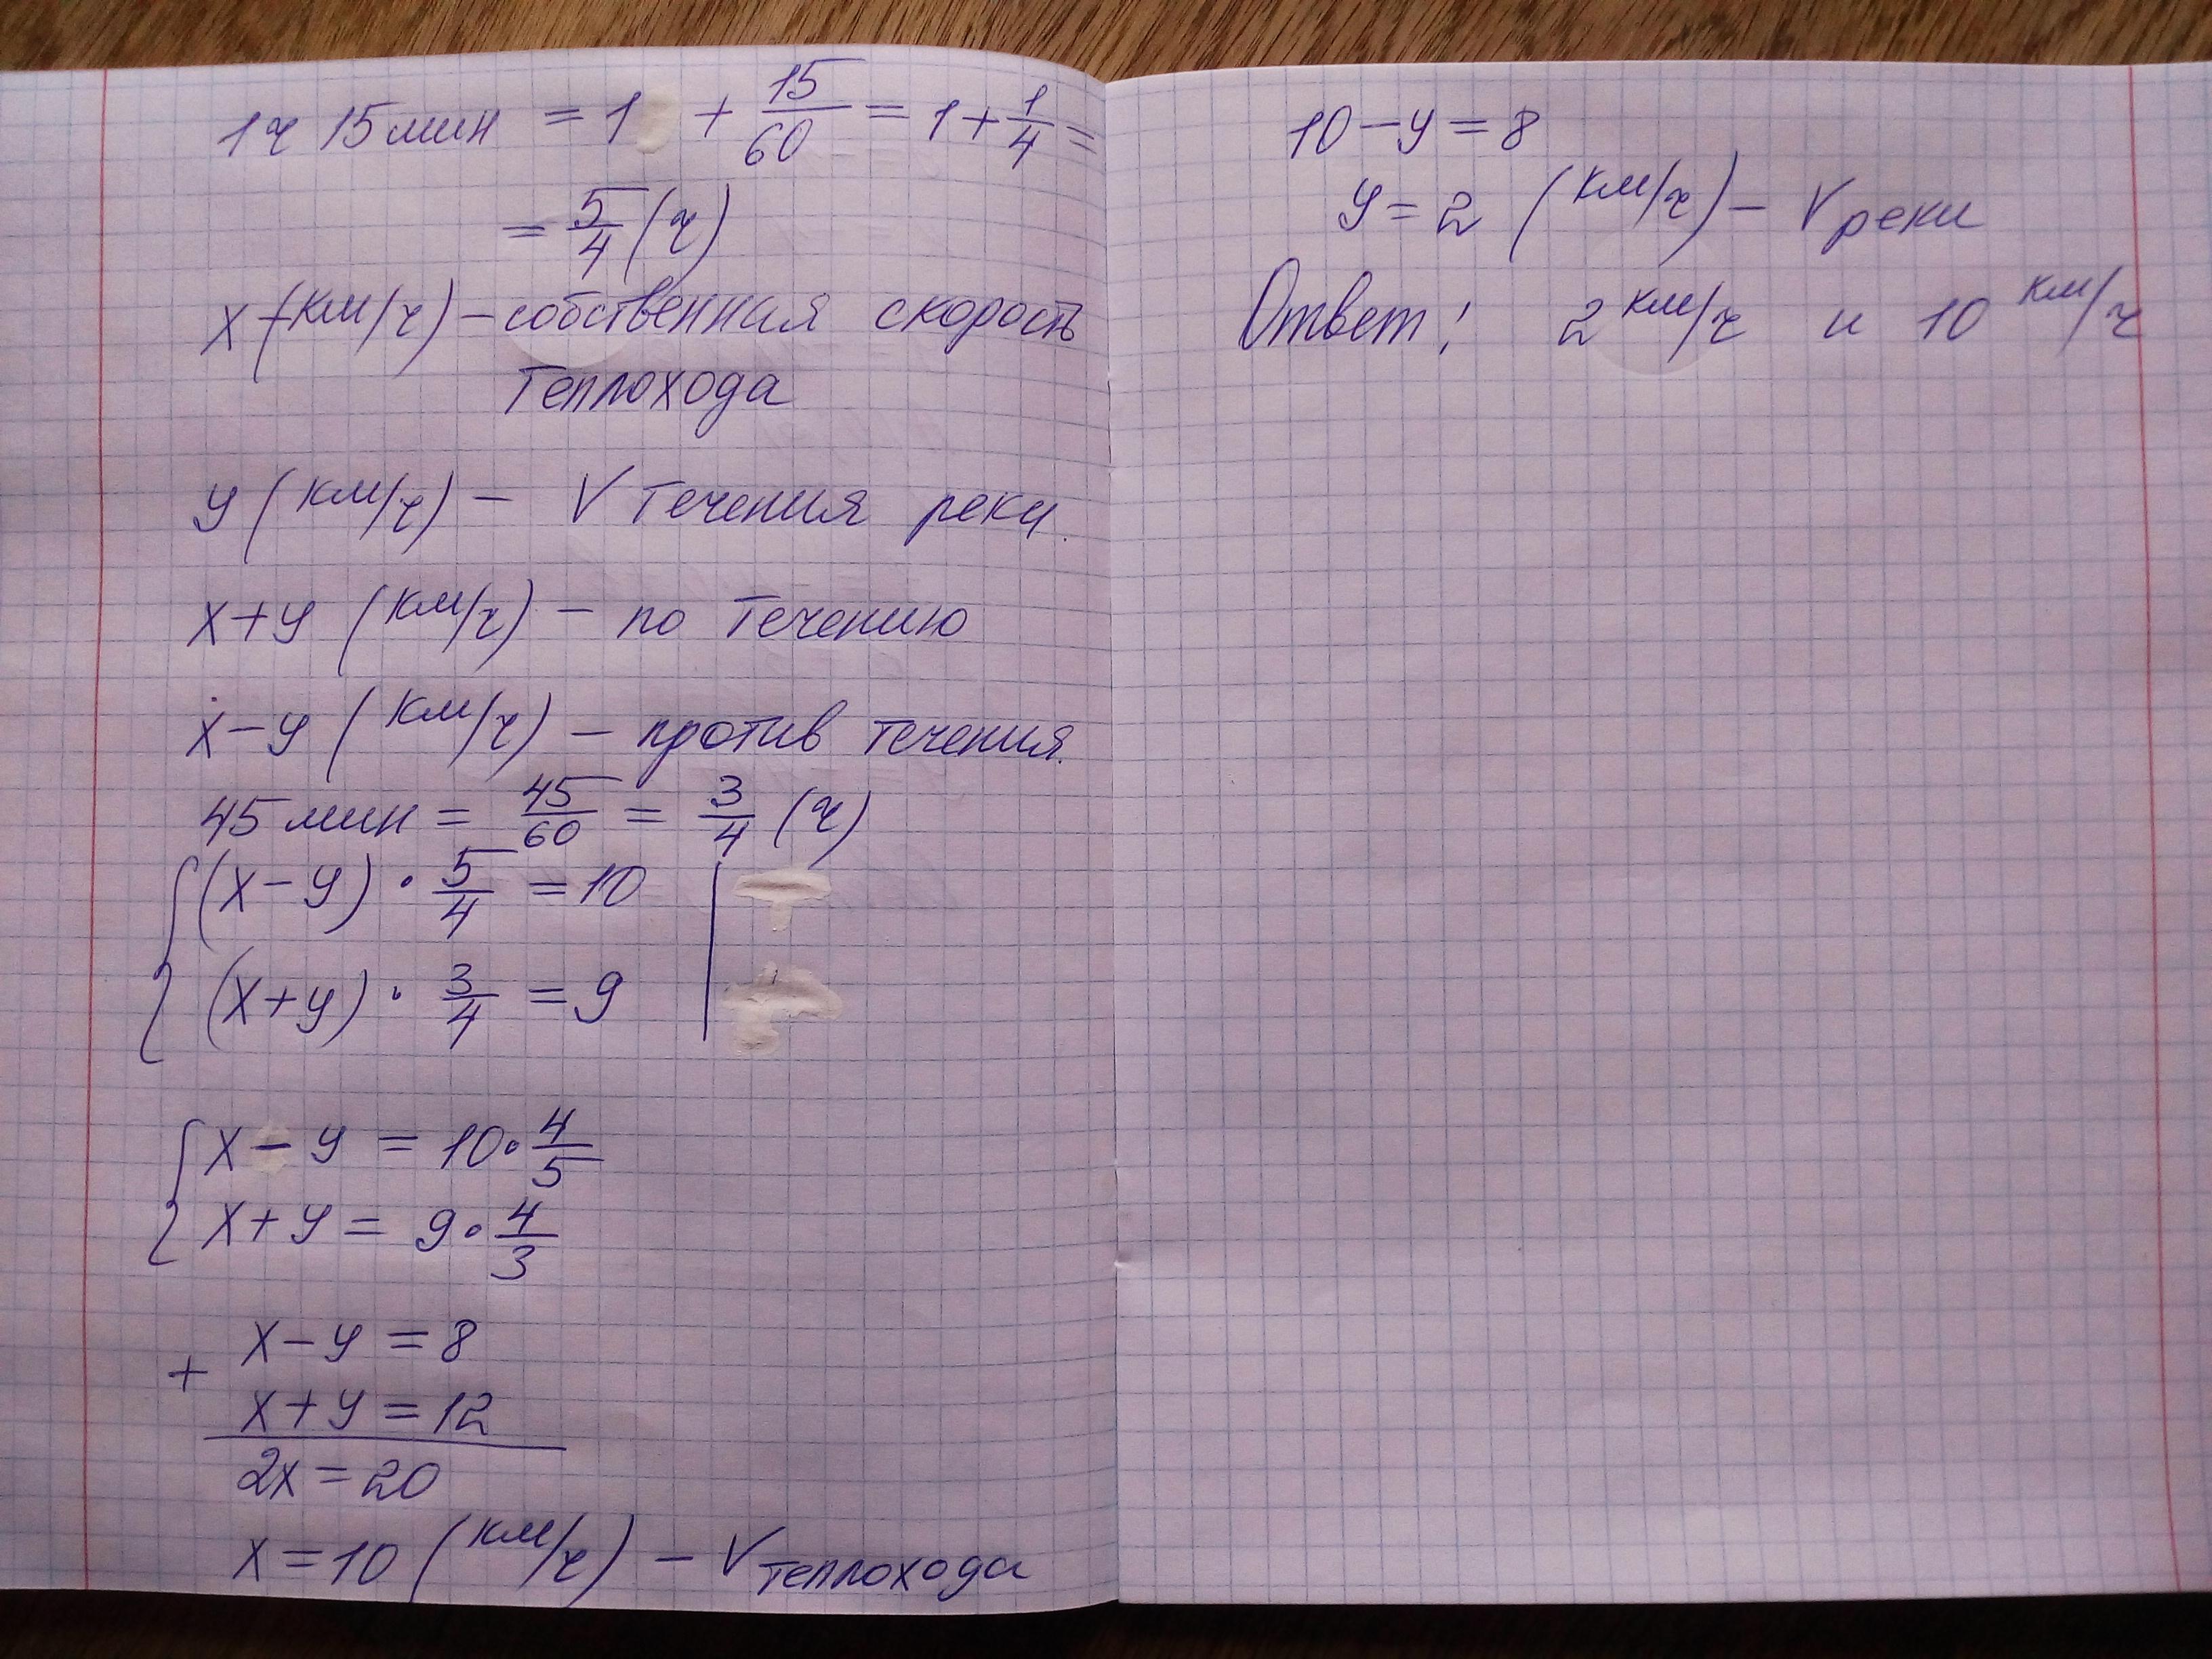 1ч 15 мин = 1 + 15/60 = 1 + 1/4 =
= 5/4 (ч)
x (км/ч) – собственная скорость
теплохода
y (км/ч) – V течения реки.
x+y (км/ч) – по течению
x–y (км/ч) – против течения.
45 мин = 45/60 = 3/4 (ч)
{ (x–y) · 5/4 = 10 |
(x+y) · 3/4 = 9 |
{ x – y = 10 · 4/5
x + y = 9 · 4/3
x – y = 8
+
x + y = 12
2x = 20
x = 10 (км/ч) – V теплохода
10 – y = 8
y = 2 (км/ч) – V реки
Ответ: 2 км/ч и 10 км/ч